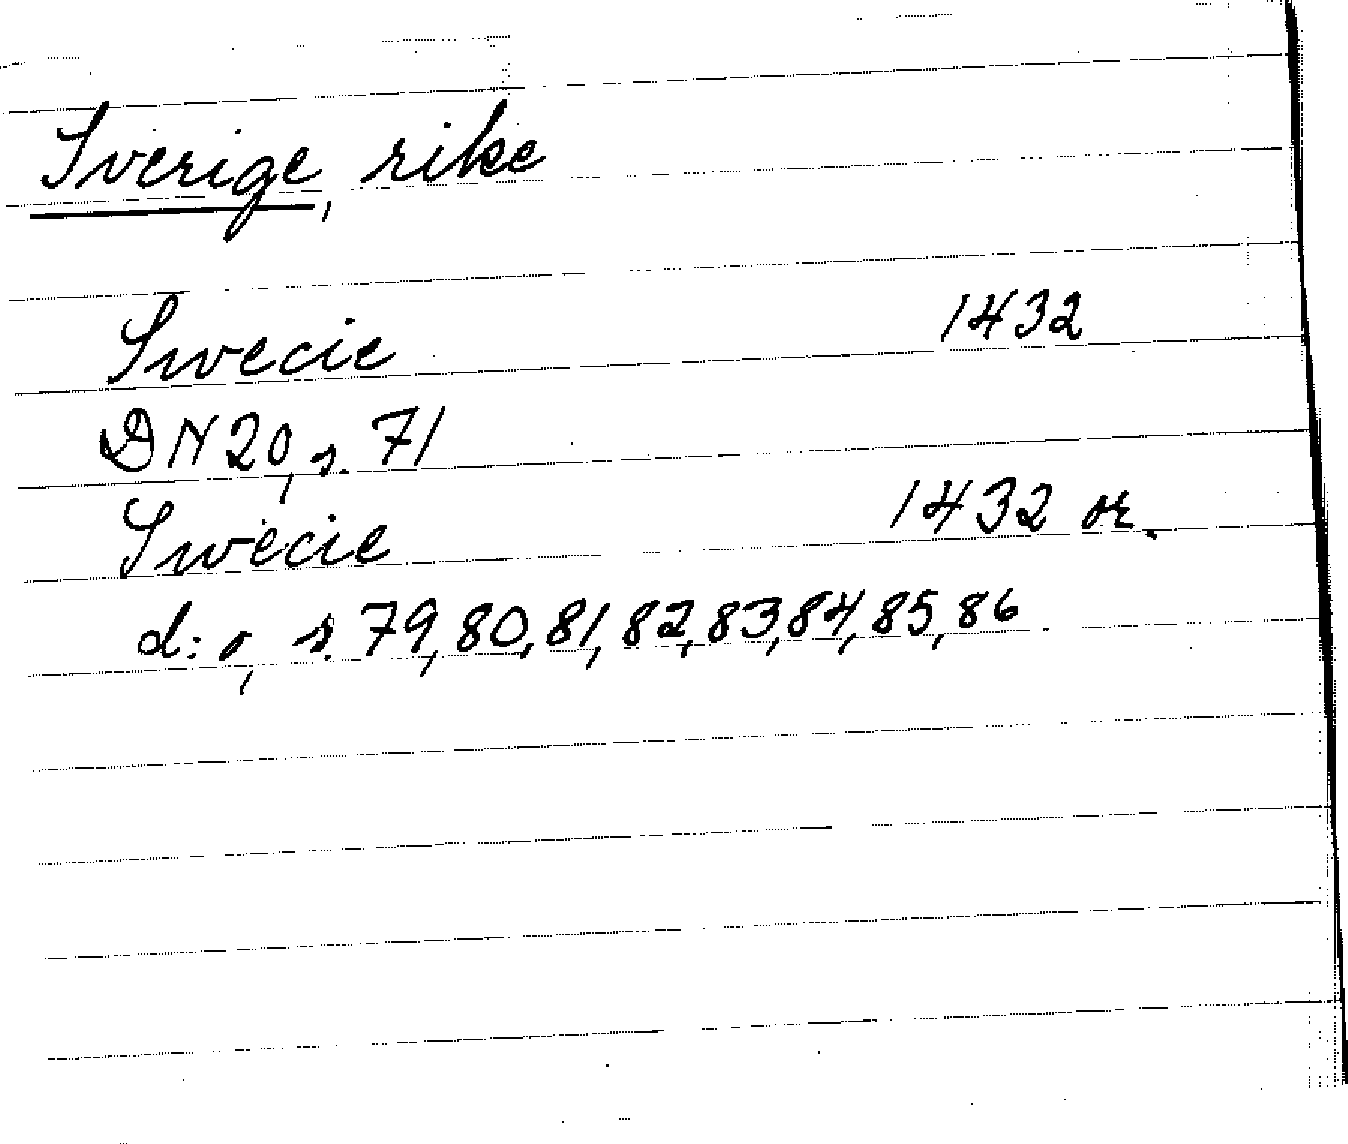 Sverige, rike
Swecie 1432
DN 20, s. 71
Swecie 1432 or.
d:o, s. 79, 80, 81, 82, 83, 84, 85, 86